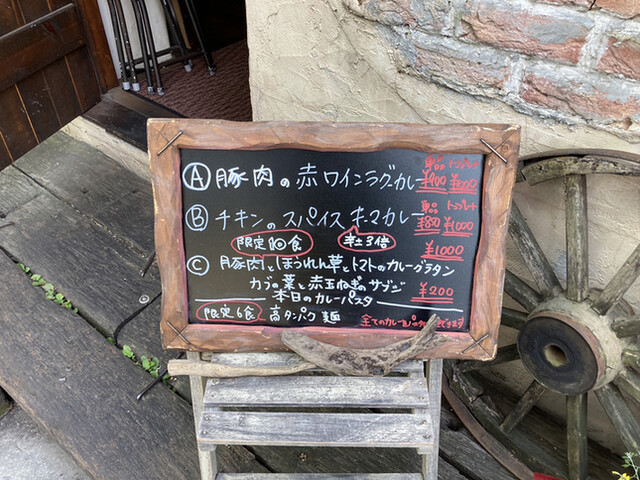 Ⓐ 豚肉の赤ワインラグーカレー 単品 ¥900
Ⓑ チキンのスパイスキーマカレー 単品 ¥850 ¥1000
限定10食 辛さ3倍 ¥1000
Ⓒ 豚肉とほうれん草とトマトのカレーグラタン
カブの菜と赤玉ねぎのサブジ ¥200
本日のカーパスタ
限定6食 高タンパク麺 全てのカレー